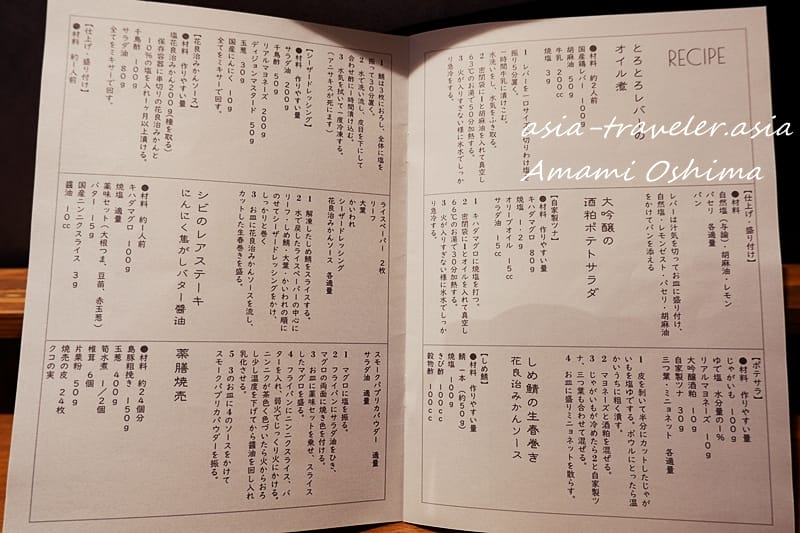 RECIPE
とろとろレバーの
オイル煮
●材料 約2人前
国産鶏レバー 100g
胡麻油 50g
牛乳 300cc
焼塩 3g
1 レバーを一口サイズに切りわけ塩を
振り5分置く。
水洗いをし、水気をふき取る。
63℃のお湯で50分加熱する。
3 火が入りすぎない様に氷水でしっか
り急冷する。
【仕上げ・盛り付け】
●材料
自然塩(与論)・胡麻油・レモン
パセリ 各適量
パン
レバーは汁気を切ってお皿に盛り付け、
自然塩・レモンゼスト・パセリ・胡麻油
をかけてパンを添える
大吟醸の
酒粕ポテトサラダ
【自家製ツナ】
●材料 作りやすい量
キハダマグロ 80g
焼塩 1.2g
オリーブオイル 15cc
サラダ油 15cc
1 キハダマグロに焼塩を打つ。
2 密閉袋に1とオイルを入れて真空し
66℃のお湯で30分加熱する。
3 火が入りすぎない様に氷水でしっか
り急冷する。
【ポテサラ】
●材料 作りやすい量
じゃがいも 100g
ゆで塩 水分量の1%
リアルマヨネーズ 10g
大吟醸酒粕 10g
自家製ツナ 30g
三つ葉・ミニョネット 各適量
1 皮を剥いて半分にカットしたじゃが
いもを塩ゆでする。ボウルにとったら温
かいうちに粗く潰す。
2 マヨネーズと酒粕を混ぜる。
3 じゃがいもが冷めたら2と自家製ツ
ナ、三つ葉も合わせて混ぜる。
4 お皿に盛りミニョネットを散らす。
しめ鯖の生春巻き
花良治みかんソース
【しめ鯖】
●材料 作りやすい量
鯖 1本(約50g)
焼塩 1g
きび酢 100cc
穀物酢 100cc
1 鯖は3枚におろし、全体に塩を
振って30分置く。
2 水で洗い流し、皮目を下にして
合わせ酢に1時間漬け込む。
3 水気を拭いて一度冷凍する。
(アニサキスが死にます)
【シーザードレッシング】
●材料 作りやすい量
サラダ油 200g
千鳥酢 50g
リアルマヨネーズ 200g
ディジョンマスタード 50g
玉葱 30g
国産にんにく 10g
全てをミキサーで回す。
【花良治みかんソース】
●材料 作りやすい量
塩花良治みかん200g(種を取る)
保存容器に串切りの花良治みかんと
10%の塩を入れ1ヶ月以上漬ける。
千鳥酢 100g
サラダ油 80g
全てをミキサーで回す。
【仕上げ・盛り付け】
●材料 約1人前
ライスペーパー 2枚
リーフ
大葉
かいわれ
シーザードレッシング
花良治みかんソース 各適量
1 解凍したしめ鯖をスライスする。
2 水で戻したライスペーパーの中心に
リーフ・しめ鯖・大葉・かいわれの順に
のせてシーザードレッシングをかけ、
しっかりと巻く
3 お皿に花良治みかんソースを流し、
カットした生春巻きを盛る。
シビのレアステーキ
にんにく焦がしバター醤油
●材料 約1人前
キハダマグロ 100g
焼塩 適量
薬味セット(大根つま、豆苗、赤玉葱)
バター 15g
国産ニンニクスライス 3g
醤油 10cc
スモークパプリカパウダー 適量
サラダ油 適量
1 マグロに塩を振る。
2 フライパンにサラダ油をひき、
マグロの両面に焼き色を付ける。
3 お皿に薬味セットを乗せ、スライス
したマグロを盛る。
4 フライパンにニンニクスライス、バ
ターを入れ、弱火でじっくり火にかける。
ニンニクが茶色く色づいたら火からおろ
し少し温度を下げてから醤油を回し入れ
乳化させる。
5 3のお皿に4のソースをかけて
スモークパプリカパウダーを振る。
薬膳焼売
●材料 約24個分
島豚粗挽き 150g
玉葱 400g
筍水煮 1/2個
椎茸 6個
片栗粉 50g
焼売の皮 24枚
クコの実
asia-traveler.asia
Amami Oshima